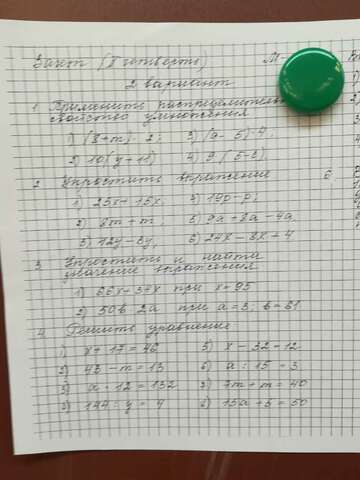 Зачет (II четверть)
2 вариант
1. Применить распределительн
свойство умножения
1) (8+m)·2; 3) (a-5)·4;
2) 10(y+11) 4) 9(5-3)
2. Упростить выражение
1) 25x+15x; 4) 19p-p;
2) 6m+m; 5) 9a+8a-4a
3) 12y-8y; 6) 24x-8x+4
3. Упростить и найти
значение выражения
1) 66x+34x при x=95
2) 50b·2a при a=3; b=61
4. Решить уравнение
1) x+17=46 5) x-32=12
2) 43-m=13 6) a:15=3
3) a·12=132 7m+m=40
144:y=4 13a+5=50